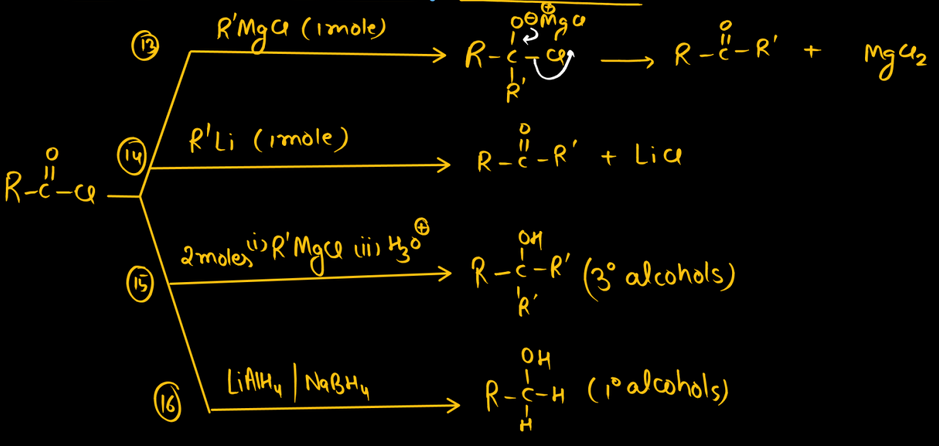 ⑬ R'MgCl (1mole) R-C(=O^⊖ ^⊕MgCl)(R')-Cl → R-C(=O)-R' + MgCl₂
⑭ R'Li (1mole) R-C(=O)-R' + LiCl
R-C(=O)-Cl
⑮ 2moles (i) R'MgCl (ii) H₃O^⊕ R-C(OH)(R')-R' (3° alcohols)
⑯ LiAlH₄ | NaBH₄ R-C(OH)(H)-H (1° alcohols)